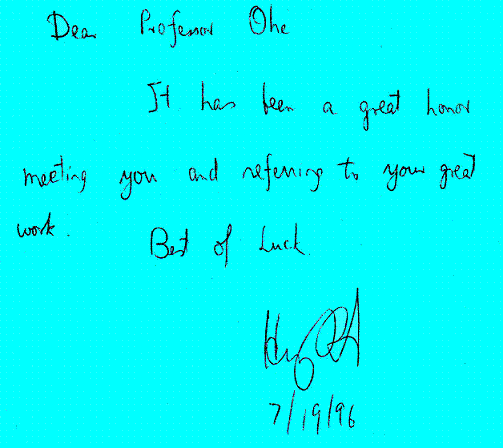 Dear Professor Ohe
It has been a great honor
meeting you and referring to your great
work.
Best of Luck.
7/19/96